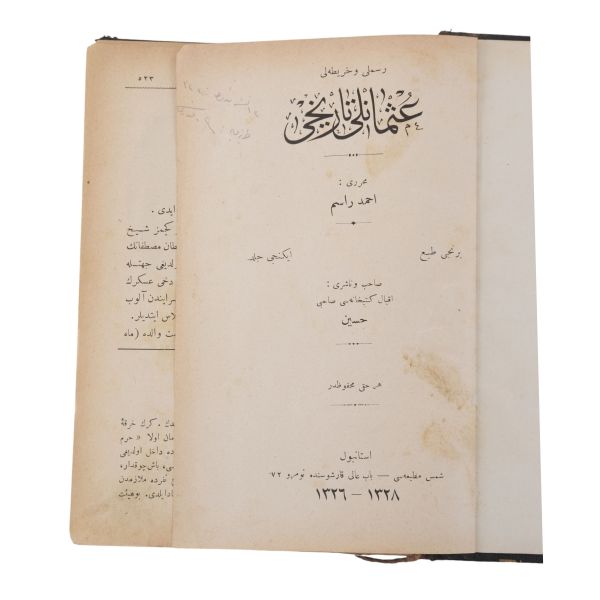 رسملی و خریطه‌لی
عثمانلی تاریخی
محرری :
احمد راسم
برنجی طبع
ایکنجی جلد
صاحب و ناشری :
اقبال کتبخانه‌سی صاحبی
حسین
هر حقی محفوظدر
استانبول
شمس مطبعه‌سی — باب عالی قارشوسنده نومرو ۷۲
۱۳۲۸ – ۱۳۲۶
۵۲۳
ایدی .
كجمز شیخ
طان مصطفانك
لدیغی جهتله
دخی عسكرك
سرایندن آلوب
لاس ایتدیلر.
ت والده (ماه
دك . كرك خرقهٔ
مان اولا « حرم
ده داخل اولدیغی
سی، باش‌چوقدار،
غ نفرده ملازمدن
دایلدی . بوهیئت